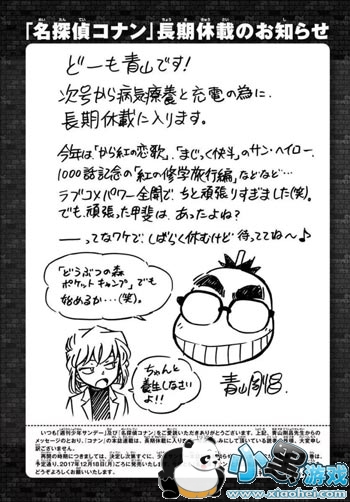 「名探偵コナン」長期休載のお知らせ
どーも青山です!
次号から病気療養と充電の為に、
長期休載に入ります。
今年は「から紅の恋歌」、「まじっく快斗」のサン・ヘイロー、
1000話記念の「紅の修学旅行編」などなど…
ラブコメパワー全開で、ちと頑張りすぎました(笑)。
でも、頑張った甲斐は、あったよね?
――ってなワケで、しばらく休むけど 待っててね〜♪
「どうぶつの森
ポケットキャンプ」でも
始めるか…(笑)。
ちゃんと
養生しなさい
よ!!
青山剛昌
いつも「週刊少年サンデー」及び「名探偵コナン」をご愛読いただきありがとうございます。上記、青山剛昌先生からの
メッセージのとおり、「コナン」の本誌連載は、長期休載に入ります。楽しみにして頂いている読者の皆様、大変申し
訳ございません。
再開の時期につきましては、決定し次第
予定通り、2017年12月18日(月)ごろに発売いたし
小黑游戏
www.xiaohei.com